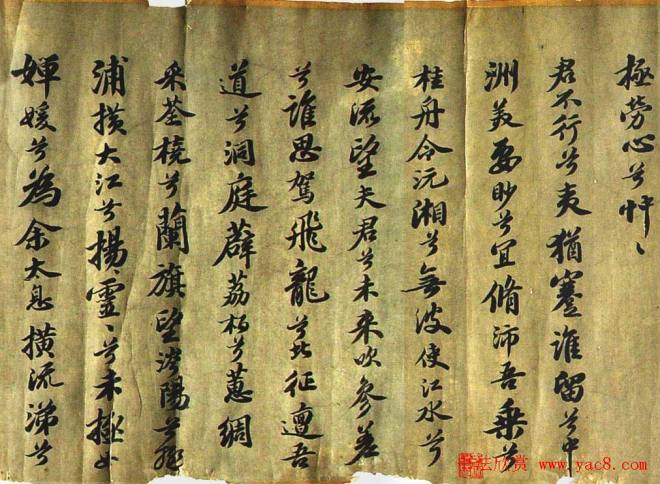 極勞心兮忡〻
君不行兮夷猶蹇誰留兮中
洲美要眇兮宜脩沛吾乘兮
桂舟令沅湘兮無波使江水兮
安流望夫君兮未來吹參差
兮誰思駕飛龍兮北征邅吾
道兮洞庭薜荔柏兮蕙綢
采荃橈兮蘭旗望涔陽兮極
浦横大江兮揚靈〻兮未極女
嬋媛兮為余太息横流涕兮
书法欣赏 www.yac8.com